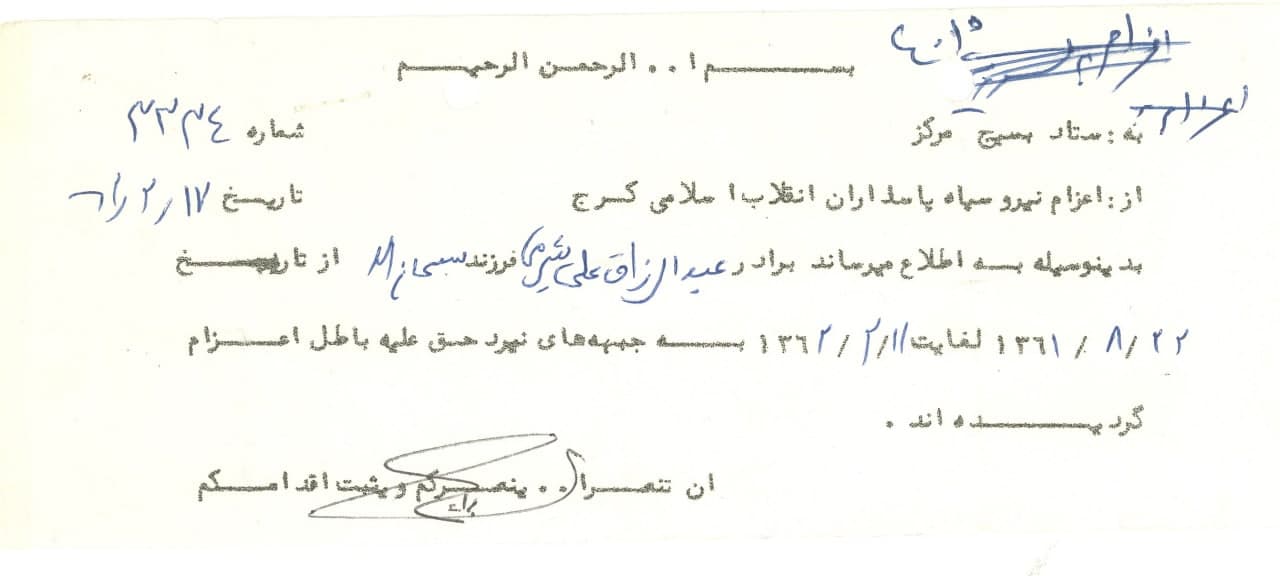 بسم ا.. الرحمن الرحیم
به : ستاد بسیج مرکز شماره ۳۳۳۴
از : اعزام نیرو سپاه پاسداران انقلاب اسلامی کرج تاریخ ۱۷ / ۲ /
بدینوسیله به اطلاع میرساند برادر عبدالرزاق علی فرزند سبحان اله از تاریخ
۲۲ / ۸ / ۱۳۶۱ لغایت ۱۱ / ۲ / ۱۳۶۲ به جبهه‌های نبرد حق علیه باطل اعزام
گردیده اند .
ان تنصرا.. ینصرکم ویثبت اقدامکم